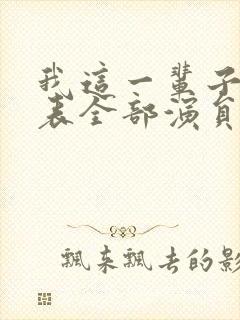 我這一輩子
表全部演員
飄來飄去的影